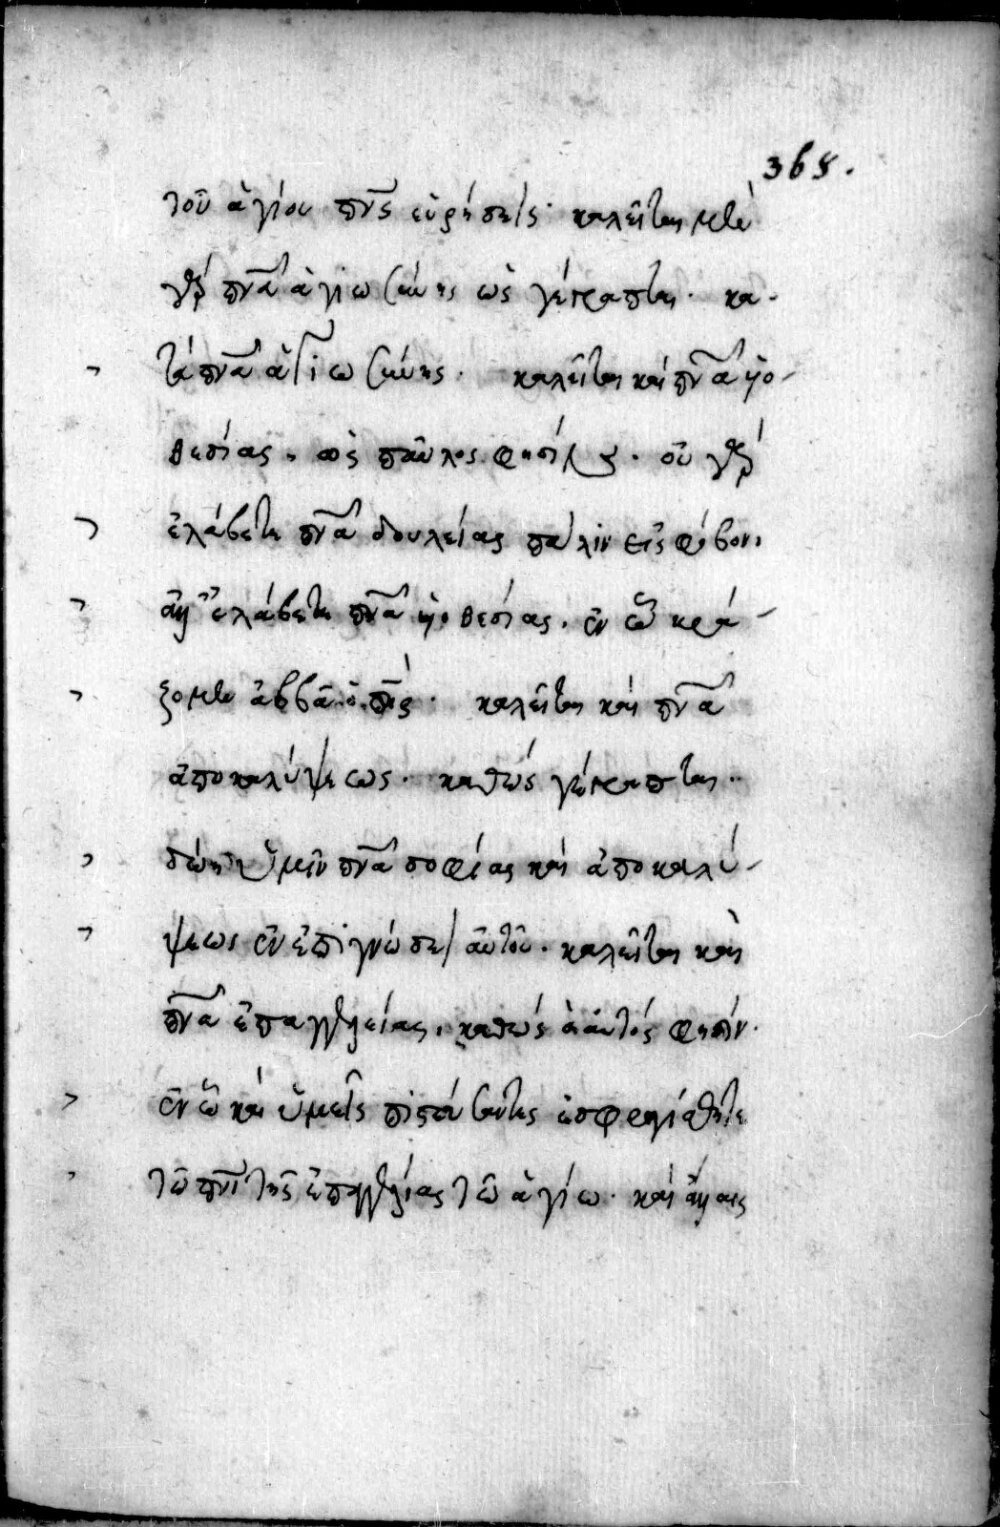 368.
τοῦ ἁγίου πν̅ς εὑρήσεις· καλεῖται μὲν
γὰρ πν̅α ἁγιωσύνης ὡς γέγραπται· κα-
τὰ πν̅α ἁγιωσύνης· καλεῖται καὶ πν̅α ὑο-
θεσίας, ὡς παῦλος φησίν· οὐ γὰρ
ἐλάβετε πν̅α δουλείας πάλιν εἰς φόβον,
ἀλλ' ἐλάβετε πν̅α ὑοθεσίας, ἐν ᾧ κρά-
ζομεν ἀββᾶ ὁ πη̅ρ· καλεῖται καὶ πν̅α
ἀποκαλύψεως· καθὼς γέγραπται·
δώῃ ὑμῖν πν̅α σοφίας καὶ ἀποκαλύ-
ψεως ἐν ἐπιγνώσει αὐτοῦ· καλεῖται καὶ
πν̅α ἐπαγγελείας, καθὼς ὁ αὐτός φησίν·
ἐν ᾧ καὶ ὑμεῖς πιστεύσαντες ἐσφραγίσθητε
τῶ πν̅ι τῆς ἐπαγγελίας τῶ ἁγίω· καὶ ἄλλαις